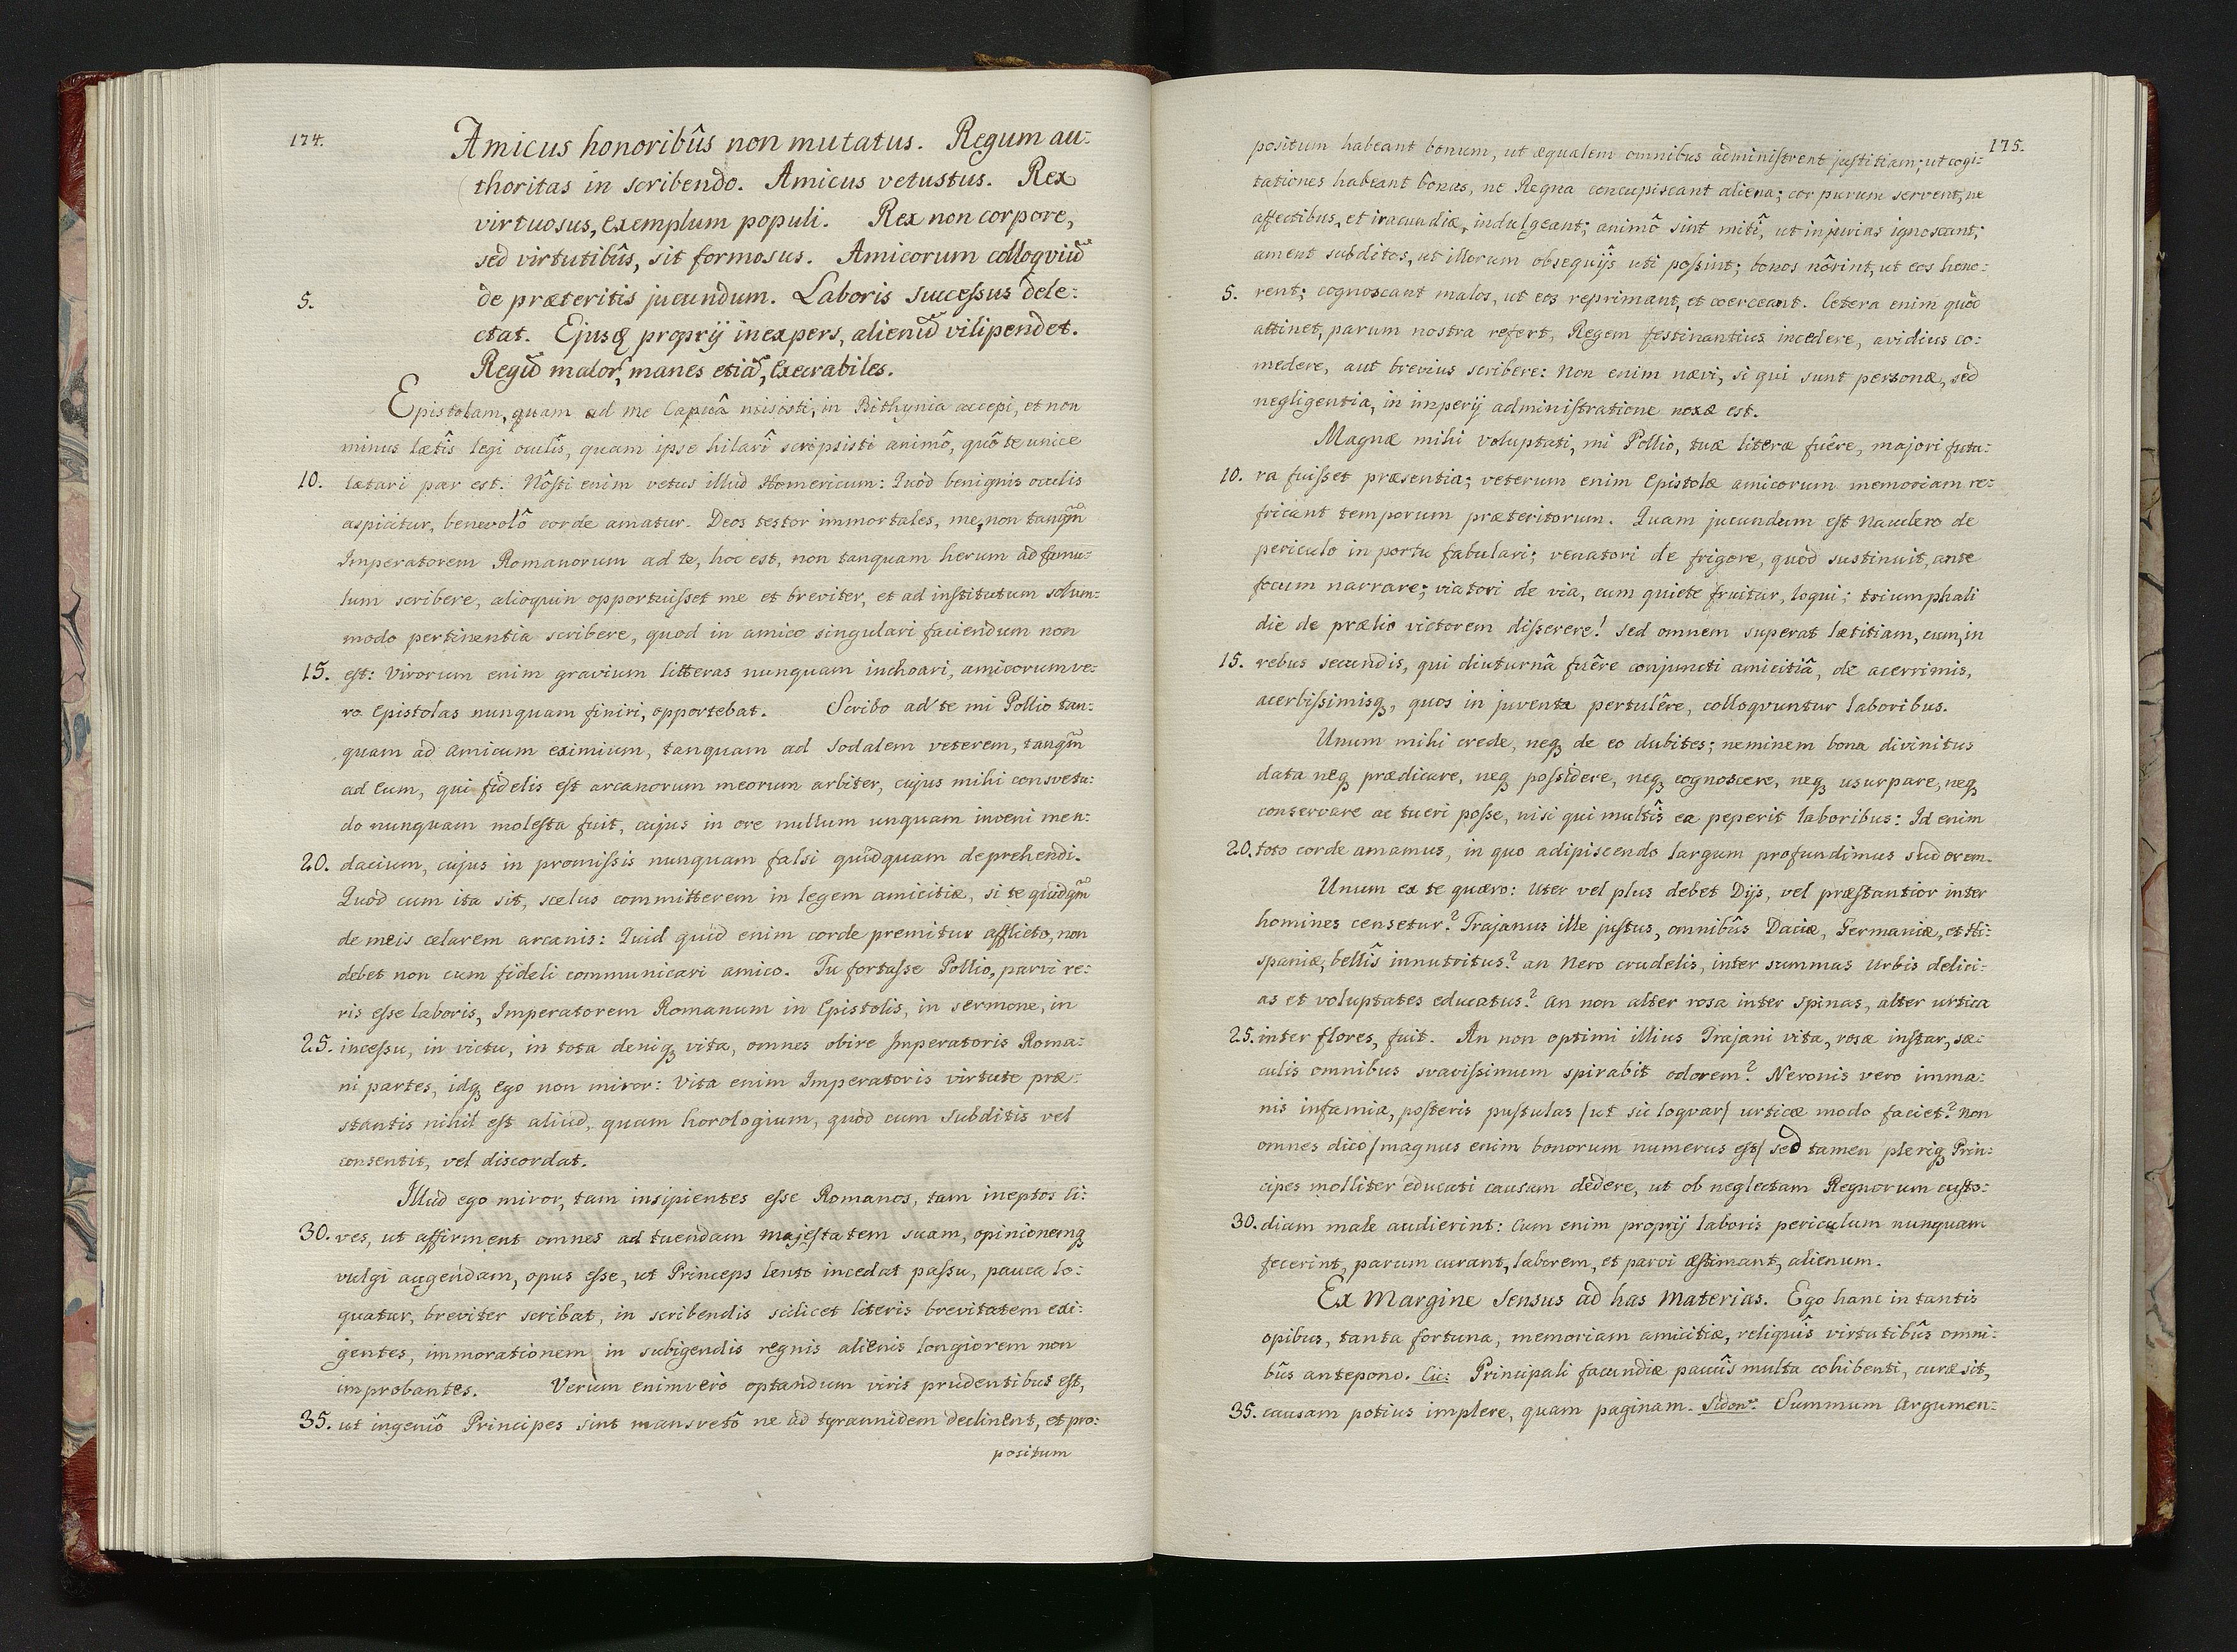 174.
Amicus honoribûs non mutatus. Regum au:
thoritas in scribendo. Amicus vetustus. Rex
virtuosus, exemplum populi. Rex non corpore,
sed virtutibûs, sit formosus. Amicorum colloqviũ
5. de præteritis jucundum. Laboris successus dele:
ctat. Ejusq proprij inexpers, alienũ vilipendet.
Regũ malor, manes etiã, execrabiles.
Epistolam, quam ad me Capuâ misisti, in Bithynia accepi, et non
minus lætîs legi oculîs, quam ipse hilarî scripsisti animô, quô te unice
10. lætari par est. Nôsti enim vetus illud Homericum: Quod benignis oculis
aspicitur, benevolô corde amatur. Deos testor immortales, me, non tanqm̃
Imperatorem Romanorum ad te, hoc est, non tanquam herum ad famu:
lum scribere, alioquin opportuisset me et breviter, et ad institutum solum:
modo pertinentia scribere, quod in amico singulari faciendum non
15. est: Virorum enim gravium litteras nunquam inchoari, amicorum ve:
ro Epistolas nunquam finiri, opportebat. Scribo ad te mi Pollio tan:
quam ad amicum eximium, tanquam ad Sodalem veterem, tanqm̃
ad Eum, qui fidelis est arcanorum meorum arbiter, cujus mihi consvetu:
do nunquam molesta fuit, cujus in ore nullum unquam inveni men:
20. dacium, cujus in promissis nunquam falsi quidquam deprehendi.
Quod cum ita sit, scelus committerem in legem amicitiæ, si te quidqm̃
de meis celarem arcanis: Quid quid enim corde premitur afflicto, non
debet non cum fideli communicari amico. Tu fortasse Pollio, parvi re:
ris esse laboris, Imperatorem Romanum in Epistolis, in sermone, in
25. incessu, in victu, in tota deniq vita, omnes obire Imperatoris Roma:
ni partes, idq ego non miror: Vita enim Imperatoris virtute præ:
stantis nihil est aliud, quam horologium, quod cum Subditis vel
consentit, vel discordat.
Illud ego miror, tam insipientes esse Romanos, tam ineptos Ci:
30. ves, ut affirment omnes ad tuendam majestatem suam, opinionemq
vulgi augendam, opus esse, ut Princeps lento incedat passu, pauca lo:
quatur, breviter scribat, in scribendis scilicet literis brevitatem exi:
gentes, immorationem in subigendis regnis alienis longiorem non
improbantes. Verùm enimverò optandum viris prudentibus est,
35. ut ingeniô Principes sint mansvetô ne ad tyrannidem declinent, et pro:
positum
175.
positum habeant bonum, ut æqualem omnibus administrent justitiam; ut cogi:
tationes habeant bonas, ne Regna concupiscant aliena; cor purum servent, ne
affectibus, et iracundiæ, indulgeant; animô sint mitî, ut injurias ignoscant;
ament subditos, ut illorum obsequijs uti possint; bonos nôrint, ut eos hono:
5. rent; cognoscant malos, ut eos reprimant, et coerceant. Cetera enim quod
attinet, parum nostra refert, Regem festinantius incedere, avidius co:
medere, aut brevius scribere: Non enim nævi, si qui sunt personæ, sed
negligentia, in imperij administratione noxæ est.
Magnæ mihi voluptati, mi Pollio, tuæ literæ fuêre, majori futu:
10. ra fuisset præsentia; veterum enim Epistolæ amicorum memoriam re:
fricant temporum præteritorum. Quam jucundum est Nauclero de
periculo in portu fabulari; venatori de frigore, quod sustinuit, ante
focum narrare; viatori de via, cum quiete fruitur, loqui; triumphali
die de prælio victorem disserere! sed omnem superat lætitiam, cum, in
15. rebus secundis, qui diuturnâ fuêre conjuncti amicitiâ, de acerrimis,
acerbissimisq, quos in juventa pertulêre, colloqvuntur laboribus.
Unum mihi crede, neq de eo dubites; neminem bona divinitus
data neq prædicare, neq possidere, neq cognoscere, neq usurpare, neq
conservare ac tueri posse, nisi qui multîs ea peperit laboribus: Id enim
20. toto corde amamus, in quo adipiscendo largum profundimus sudorem.
Unum ex te quæro: Uter vel plus debet Dijs, vel præstantior inter
homines censetur? Trajanus ille justus, omnibûs Daciæ, Germaniæ, et Hi:
spaniæ, bellîs innutritus? an Nero crudelis, inter summas Urbis delici:
as et voluptates educatus? An non alter rosa inter spinas, alter urtica
25. inter flores, fuit. An non optimi illius Trajani vita, rosæ instar, sæ:
culis omnibus svavissimum spirabit odorem? Neronis vero imma:
nis infamia, posteris pustulas /ut sic loqvar/ urticæ modo faciet? Non
omnes dico /magnus enim bonorum numerus est/ sed tamen pleriq Prin:
cipes molliter educati causam dedere, ut ob neglectam Regnorum custo:
30. diam male audierint: Cum enim proprij laboris periculum nunquam
fecerint, parum curant, laborem, et parvi æstimant, alienum.
Ex Margine Sensus ad has Materias. Ego hanc in tantis
opibus, tanta fortuna, memoriam amicitiæ, reliquîs virtutibûs omni:
bûs antepono. Cic: Principali facundiæ paucîs multa cohibenti, curæ sit,
35. causam potius implere, quam paginam. Sidon: Summum Argumen: